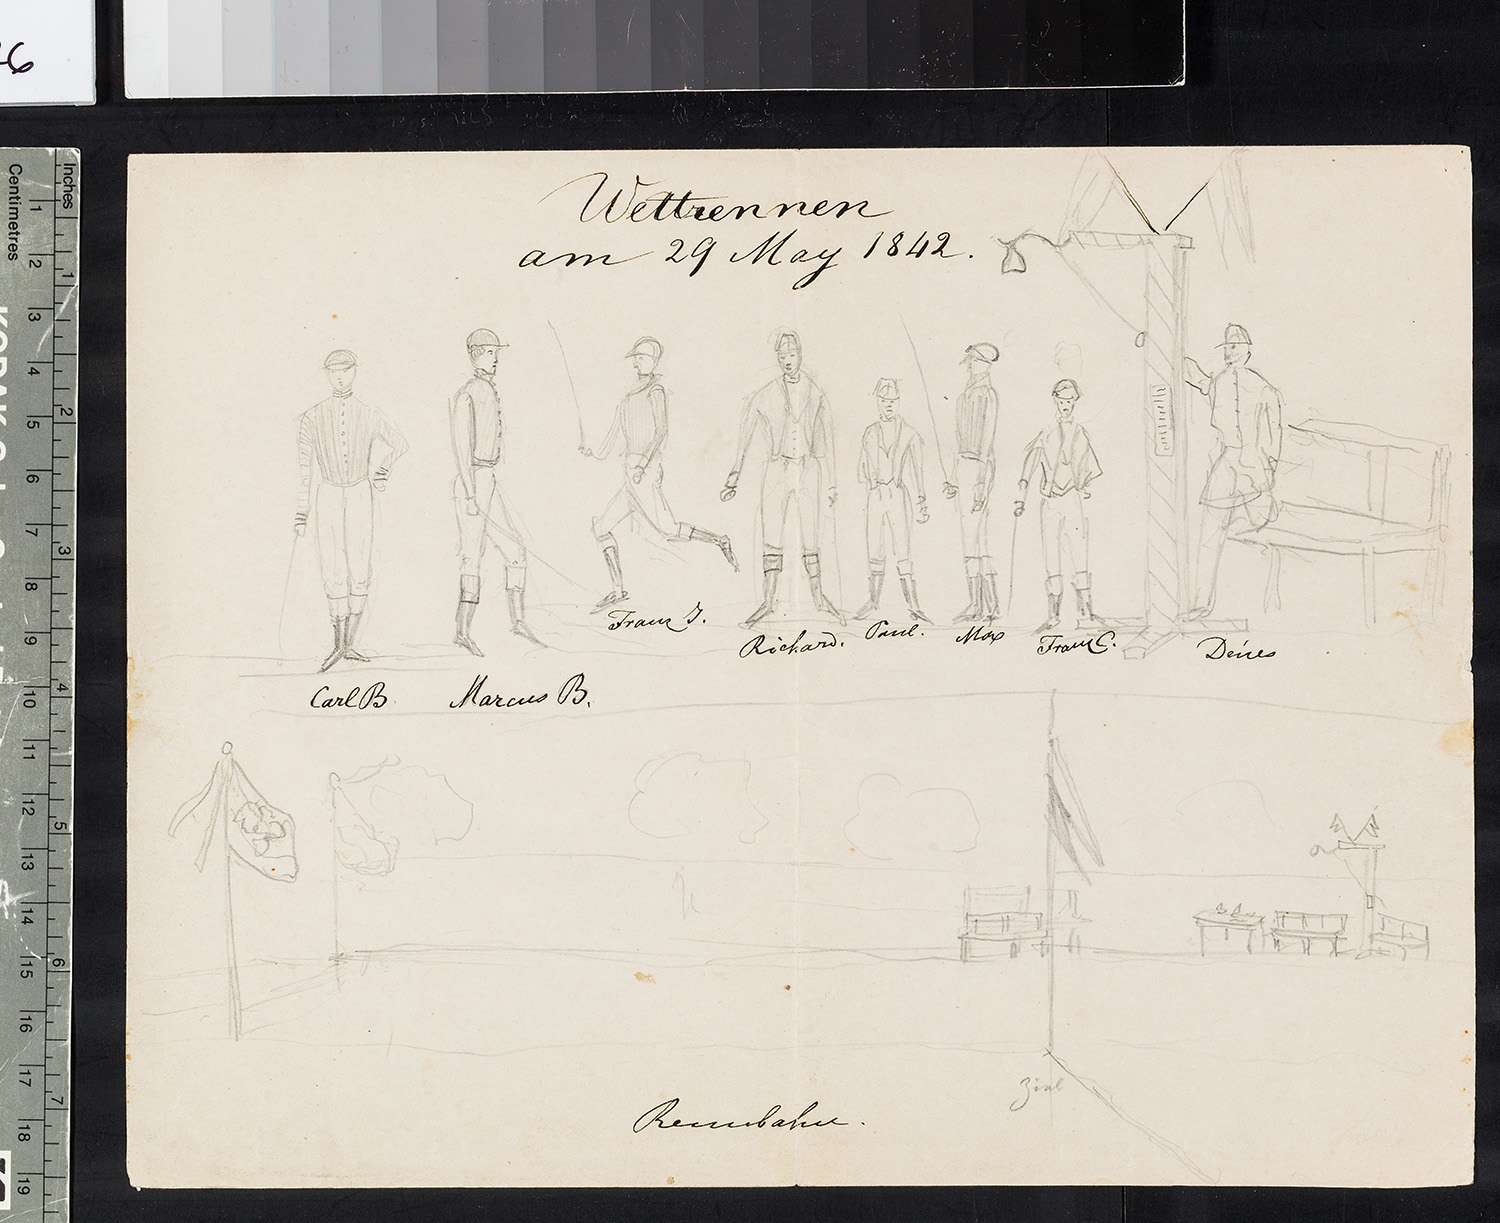 Wettrennen
am 29 May 1842.
Franz J.
Richard.
Paul.
Max
Franz C.
Dénes
Carl B.
Marcus B.
Ziel
Rennbahn.
Inches
Centimetres
1 2 3 4 5 6 7 8 9 10 11 12 13 14 15 16 17 18 19
1 2 3 4 5 6 7